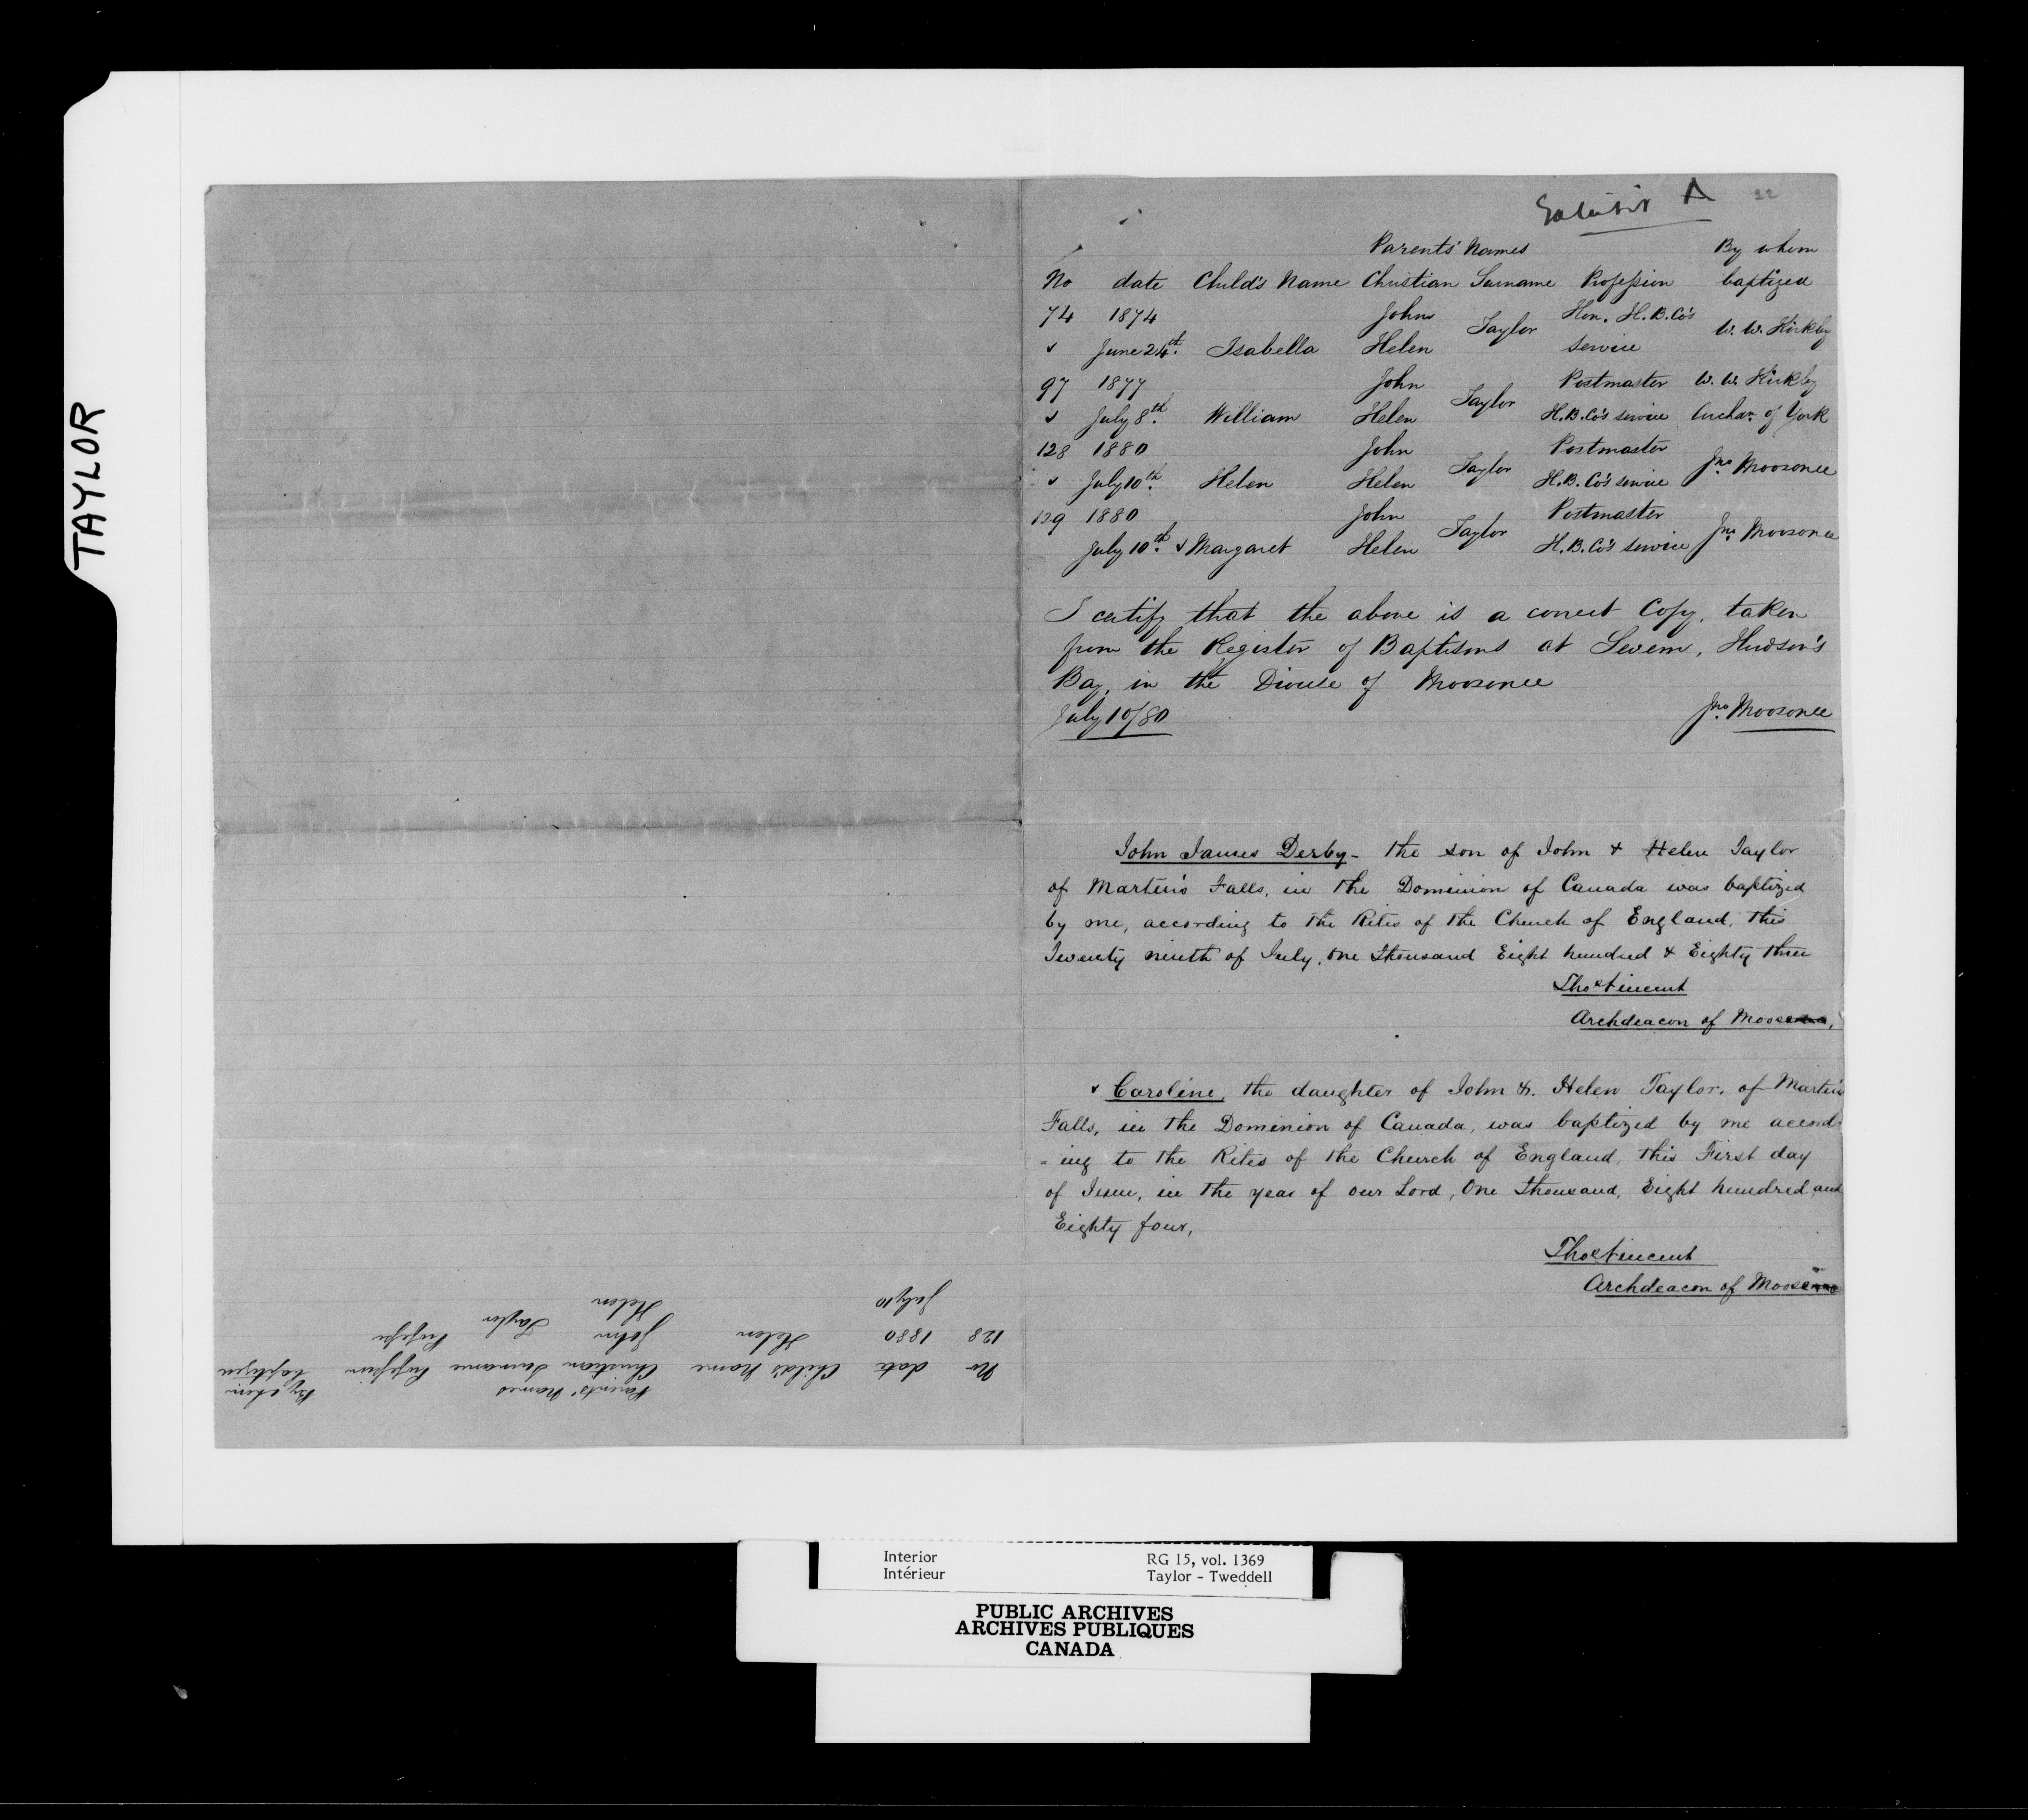 TAYLOR
Exhibit A 22
Parents' Names By whom
No date Child's Name Christian Surname Profession baptized
74 1874 John Taylor Hon. H.B.Co's W. W. Kirkby
June 24th. Isabella Helen service
97 1877 John Taylor Postmaster W. W. Kirkby
July 8th. William Helen H.B.Co's service Archdn. of York
128 1880 John Taylor Postmaster Jno. Moosonee
July 10th. Helen Helen H.B.Co's service
129 1880 John Taylor Postmaster Jno. Moosonee
July 10th. Margaret Helen H.B.Co's service
I certify that the above is a correct Copy, taken
from the Register of Baptisms at Severn, Hudson's
Bay, in the Diocese of Moosonee
July 10/80 Jno. Moosonee
John James Derby - the son of John & Helen Taylor
of Martin's Falls, in the Dominion of Canada was baptized
by me, according to the Rites of the Church of England, this
Twenty ninth of July, One Thousand Eight hundred & Eighty three
Thos Vincent
Archdeacon of Moosonee,
Caroline, the daughter of John & Helen Taylor, of Martin's
Falls, in the Dominion of Canada, was baptized by me accord
-ing to the Rites of the Church of England, this First day
of June, in the year of our Lord, One thousand, Eight hundred and
Eighty four,
Thos Vincent
Archdeacon of Moosonee
Parents' Names By whom
No date Child's Name Christian Surname Profession baptized
128 1880 Helen John Taylor Professi
July 10 Helen
Interior RG 15, vol. 1369
Intérieur Taylor - Tweddell
PUBLIC ARCHIVES
ARCHIVES PUBLIQUES
CANADA